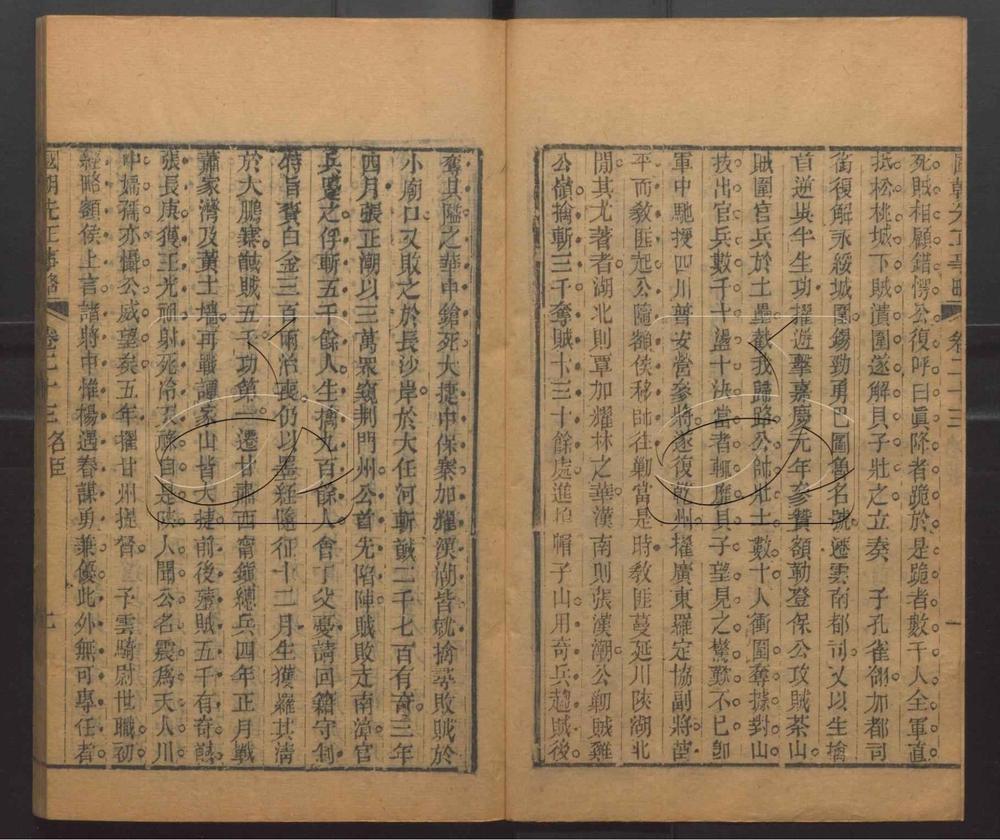 國朝先正事略 卷二十三 一
死賊相顧錯愕公復呼曰眞降者跪於是跪者數千人全軍直
抵松桃城下賊潰圍遂解貝子壯之立奏 予孔雀翎加都司
銜復解永綏城圍錫勁勇巴圖魯名號遷雲南都司又以生擒
首逆吳半生功擢遊擊嘉慶元年參贊額勒登保公攻賊茶山
賊圍官兵於土壘截我歸路公帥壯士數十人衝圍奪據對山
技出官兵數千十盪十決當者輒靡貝子望見之驚歎不已卽
軍中馳授四川普安營參將遂復乾州擢廣東羅定協副將苗
平而敎匪起公隨額侯移師往勦當是時敎匪蔓延川陝湖北
閒其尤著者湖北則覃加耀林之華漢南則張漢潮公勦賊雞
公嶺擒斬三千奪賊卡三十餘處進 帽子山用奇兵趨賊後
奪其隘之華中鎗死大捷中保寨加耀漢湖皆就擒尋敗賊於
小廟口又敗之於長沙岸於大任河斬馘二千七百有奇三年
四月張正潮以三萬眾窺荆門州公首先陷陣賊敗走南漳官
兵 之俘斬五千餘人生擒九百餘人會丁父憂請回籍守制
特旨賚白金三百兩治喪仍以墨絰隨征十二月生獲羅其淸
於大鵬寨馘賊五千功第一遷甘肅西甯鎭總兵四年正月戰
蕭家灣及黃土墻再戰譚家山皆大捷前後殪賊五千有奇
張長庚獲王光 射死冷天祿自是陝人聞公名震爲天人川
中婦孺亦懾公威望矣五年擢甘州提督 予雲騎尉世職初
經略額侯上言諸將中惟楊遇春謀勇兼優此外無可專任者
國朝先正事略 卷二十三名臣